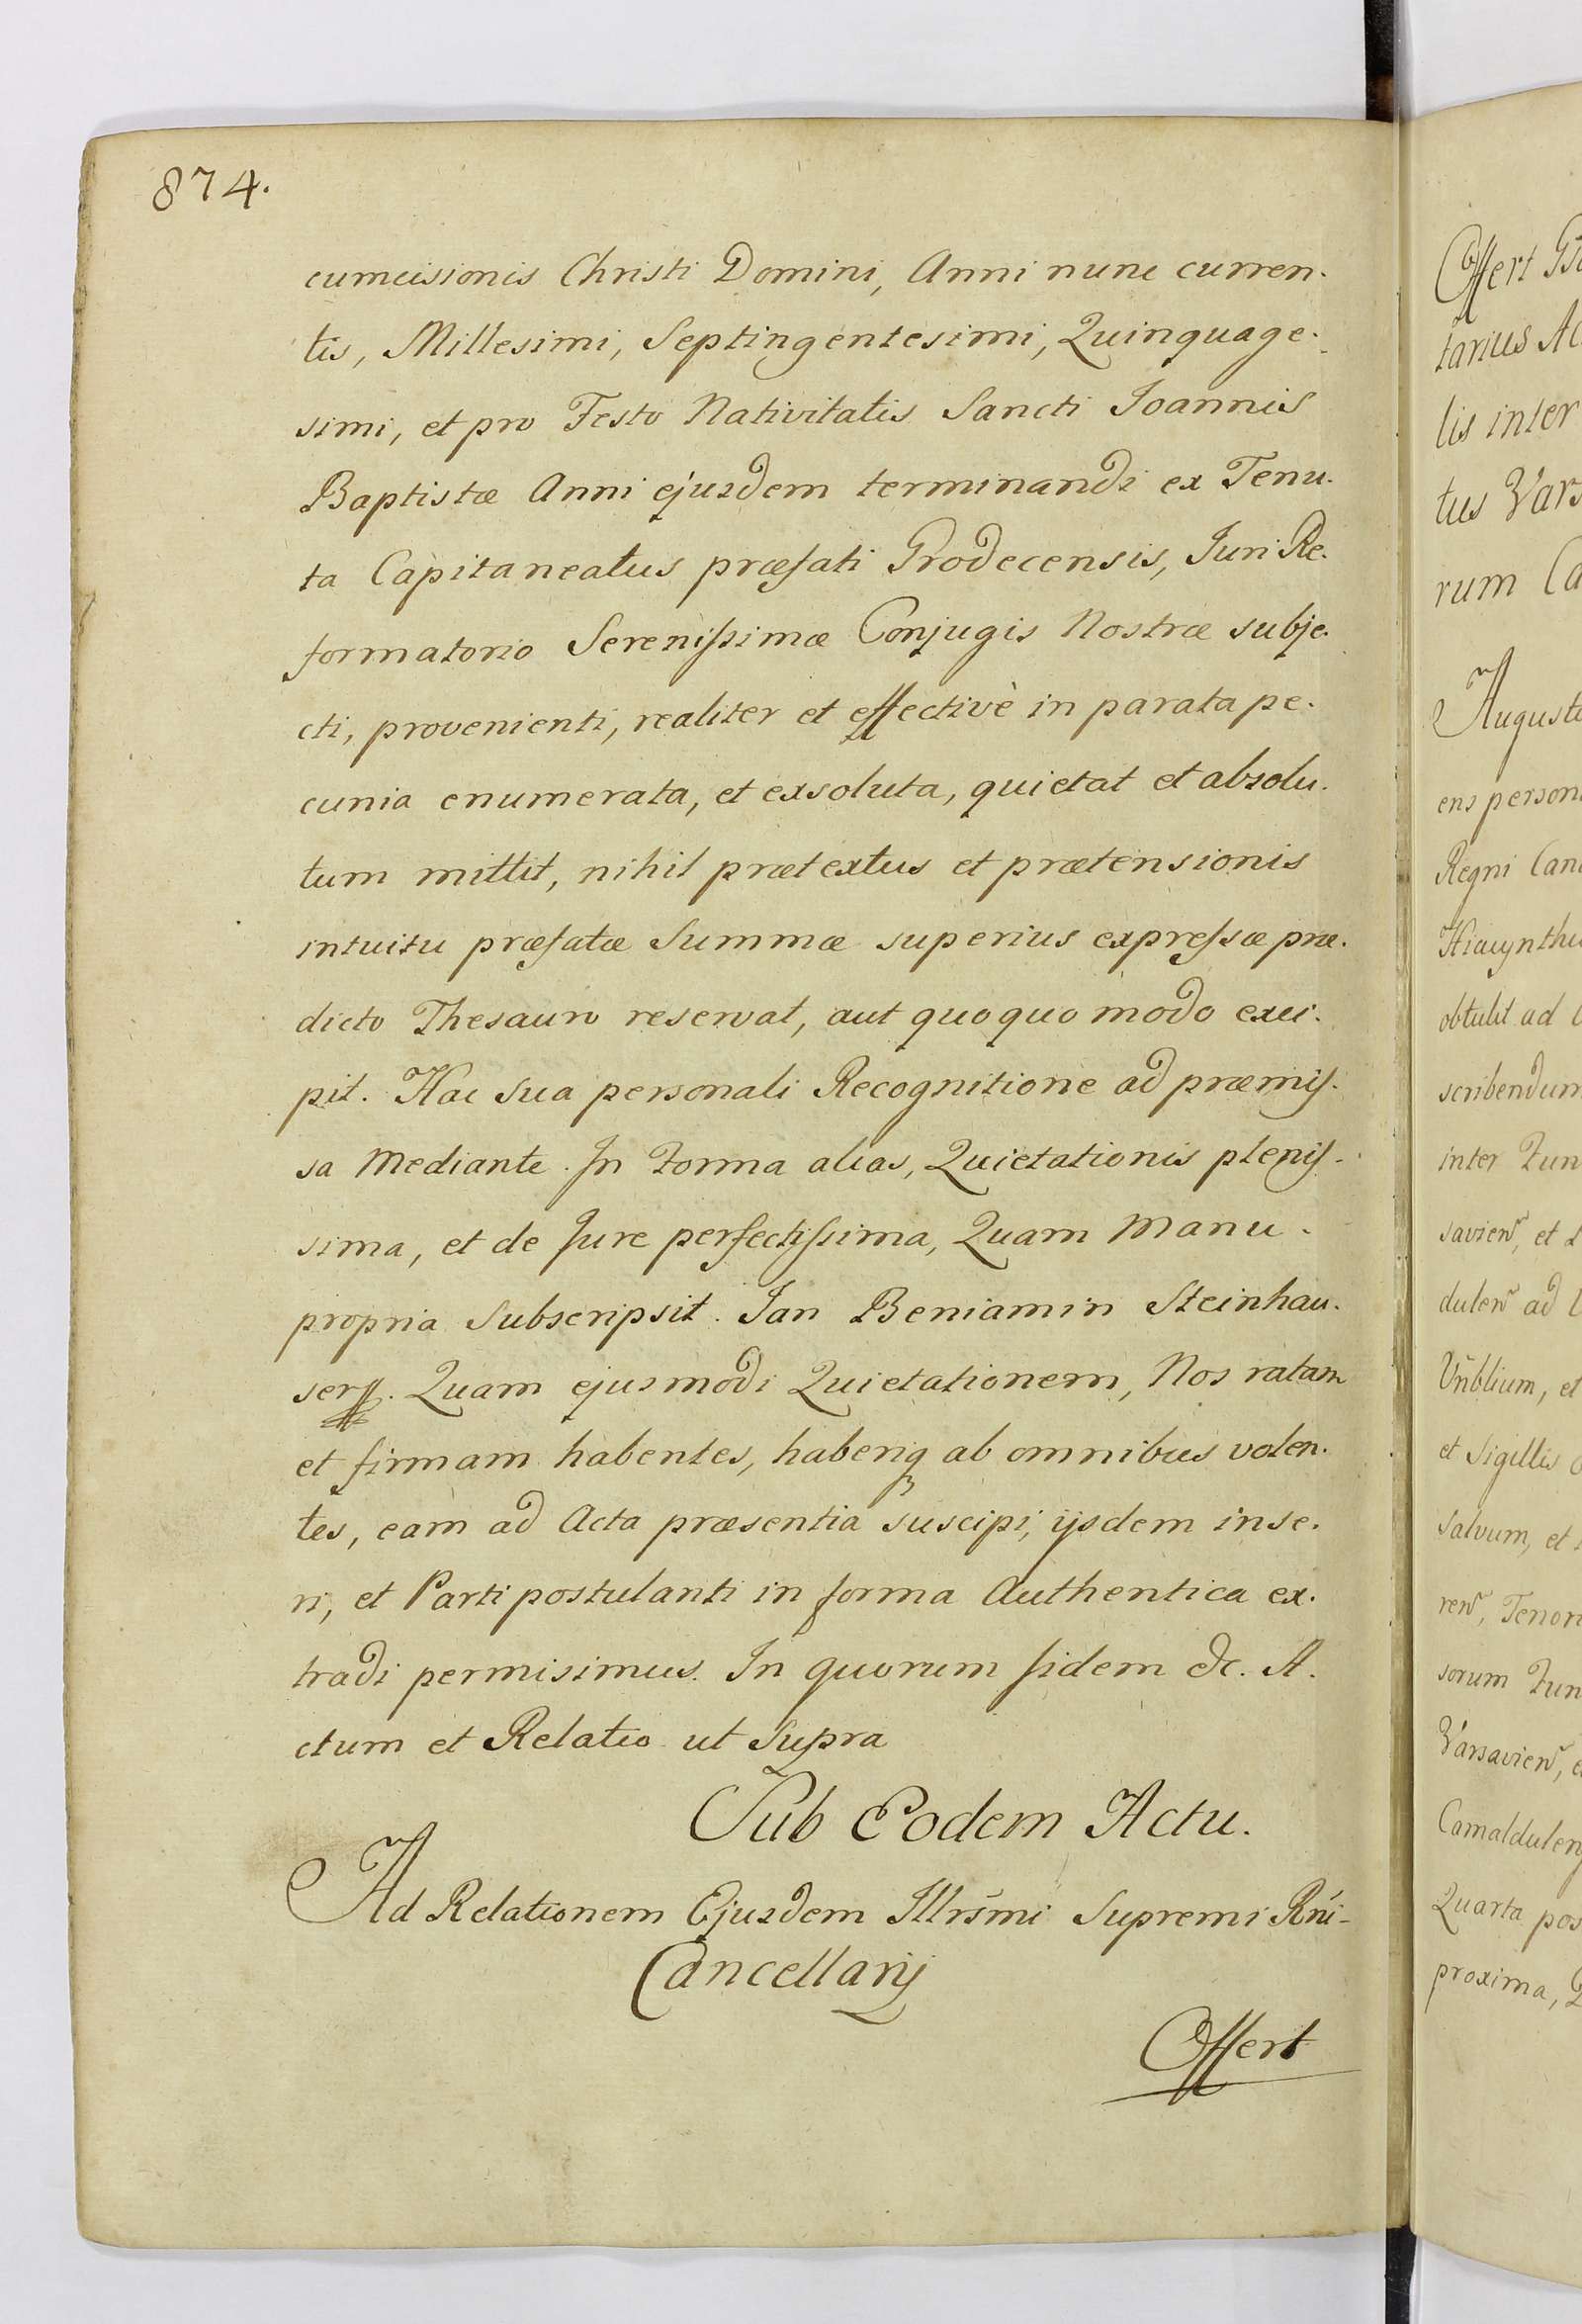 874.
cumcisionis Christi Domini, Anni nunc curren.
tis, Millesimi, Septingentesimi, Quinquage.
simi, et pro Festo Nativitatis Sancti Joannis
Baptistæ Anni ejusdem terminandi ex Tenu.
ta Capitaneatus præfati Grodecensis, Juri Re.
formatorio Serenissimæ Conjugis Nostræ subje.
cti, provenienti, realiter et effectivè in parata pe.
cunia enumerata, et exsoluta, quietat et absolu.
tum mittit, nihil prætextus et prætensionis
intuitu præfatæ Summæ superius expressæ præ.
dicto Thesauro reservat, aut quoquo modo exci.
pit. Hac sua personali Recognitione ad præmis.
sa Mediante. In Forma alias, Quietationis plenis.
sima, et de Jure perfectissima, Quam Manu.
propria Subscripsit. Jan Beniamin Steinhau.
ser. Quam ejusmodi Quietationem, Nos ratam
et firmam habentes, haberiq ab omnibus volen.
tes, eam ad Acta præsentia suscipi, ijsdem inse.
ri, et Parti postulanti in forma Authentica ex.
tradi permisimus. In quorum fidem &c. A.
ctum et Relatio ut Supra
Sub Eodem Actu.
Ad Relationem Ejusdem Illrsm̃i Supremi Rñi
Cancellarij
Offert
Offert
tarius
lis inter
tus
rum
ens
Regni
obtulit ad
scribendum
inter
savien, et
dulen ad
et Sigillis
salvum, et
sorum
Varsavien,
Quarta
proxima,